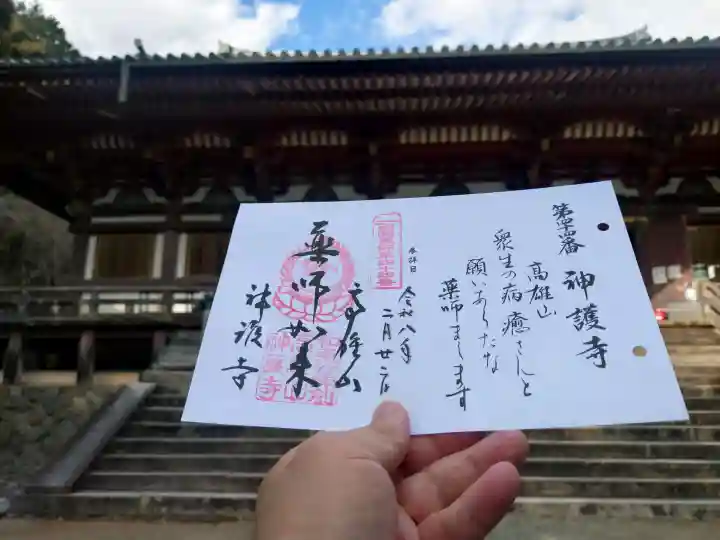 第四十四番 神護寺
高雄山
衆生の病癒さんと
願いあらたな
薬師まします
奉拝日
令和八年
二月廿二日
高雄山
薬師如来
神護寺